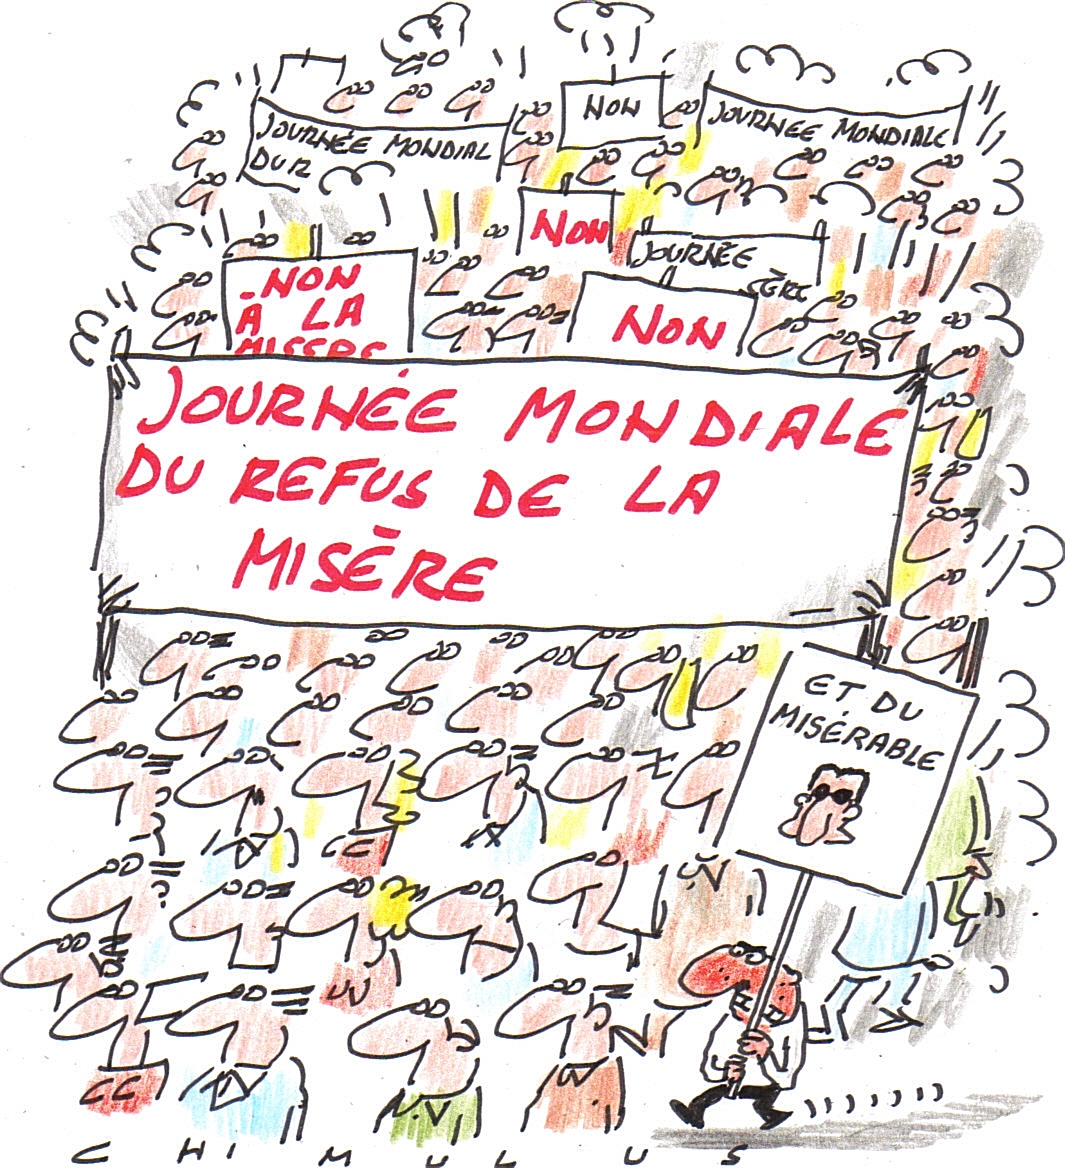 JOURNÉE MONDIAL
DU R
NON
JOURNEE MONDIALE
NON
JOURNÉE
NON
À LA
NON
JOURNÉE MONDIALE
DU REFUS DE LA
MISÈRE
ET DU
MISÉRABLE
CC
CC
CHIMULUS